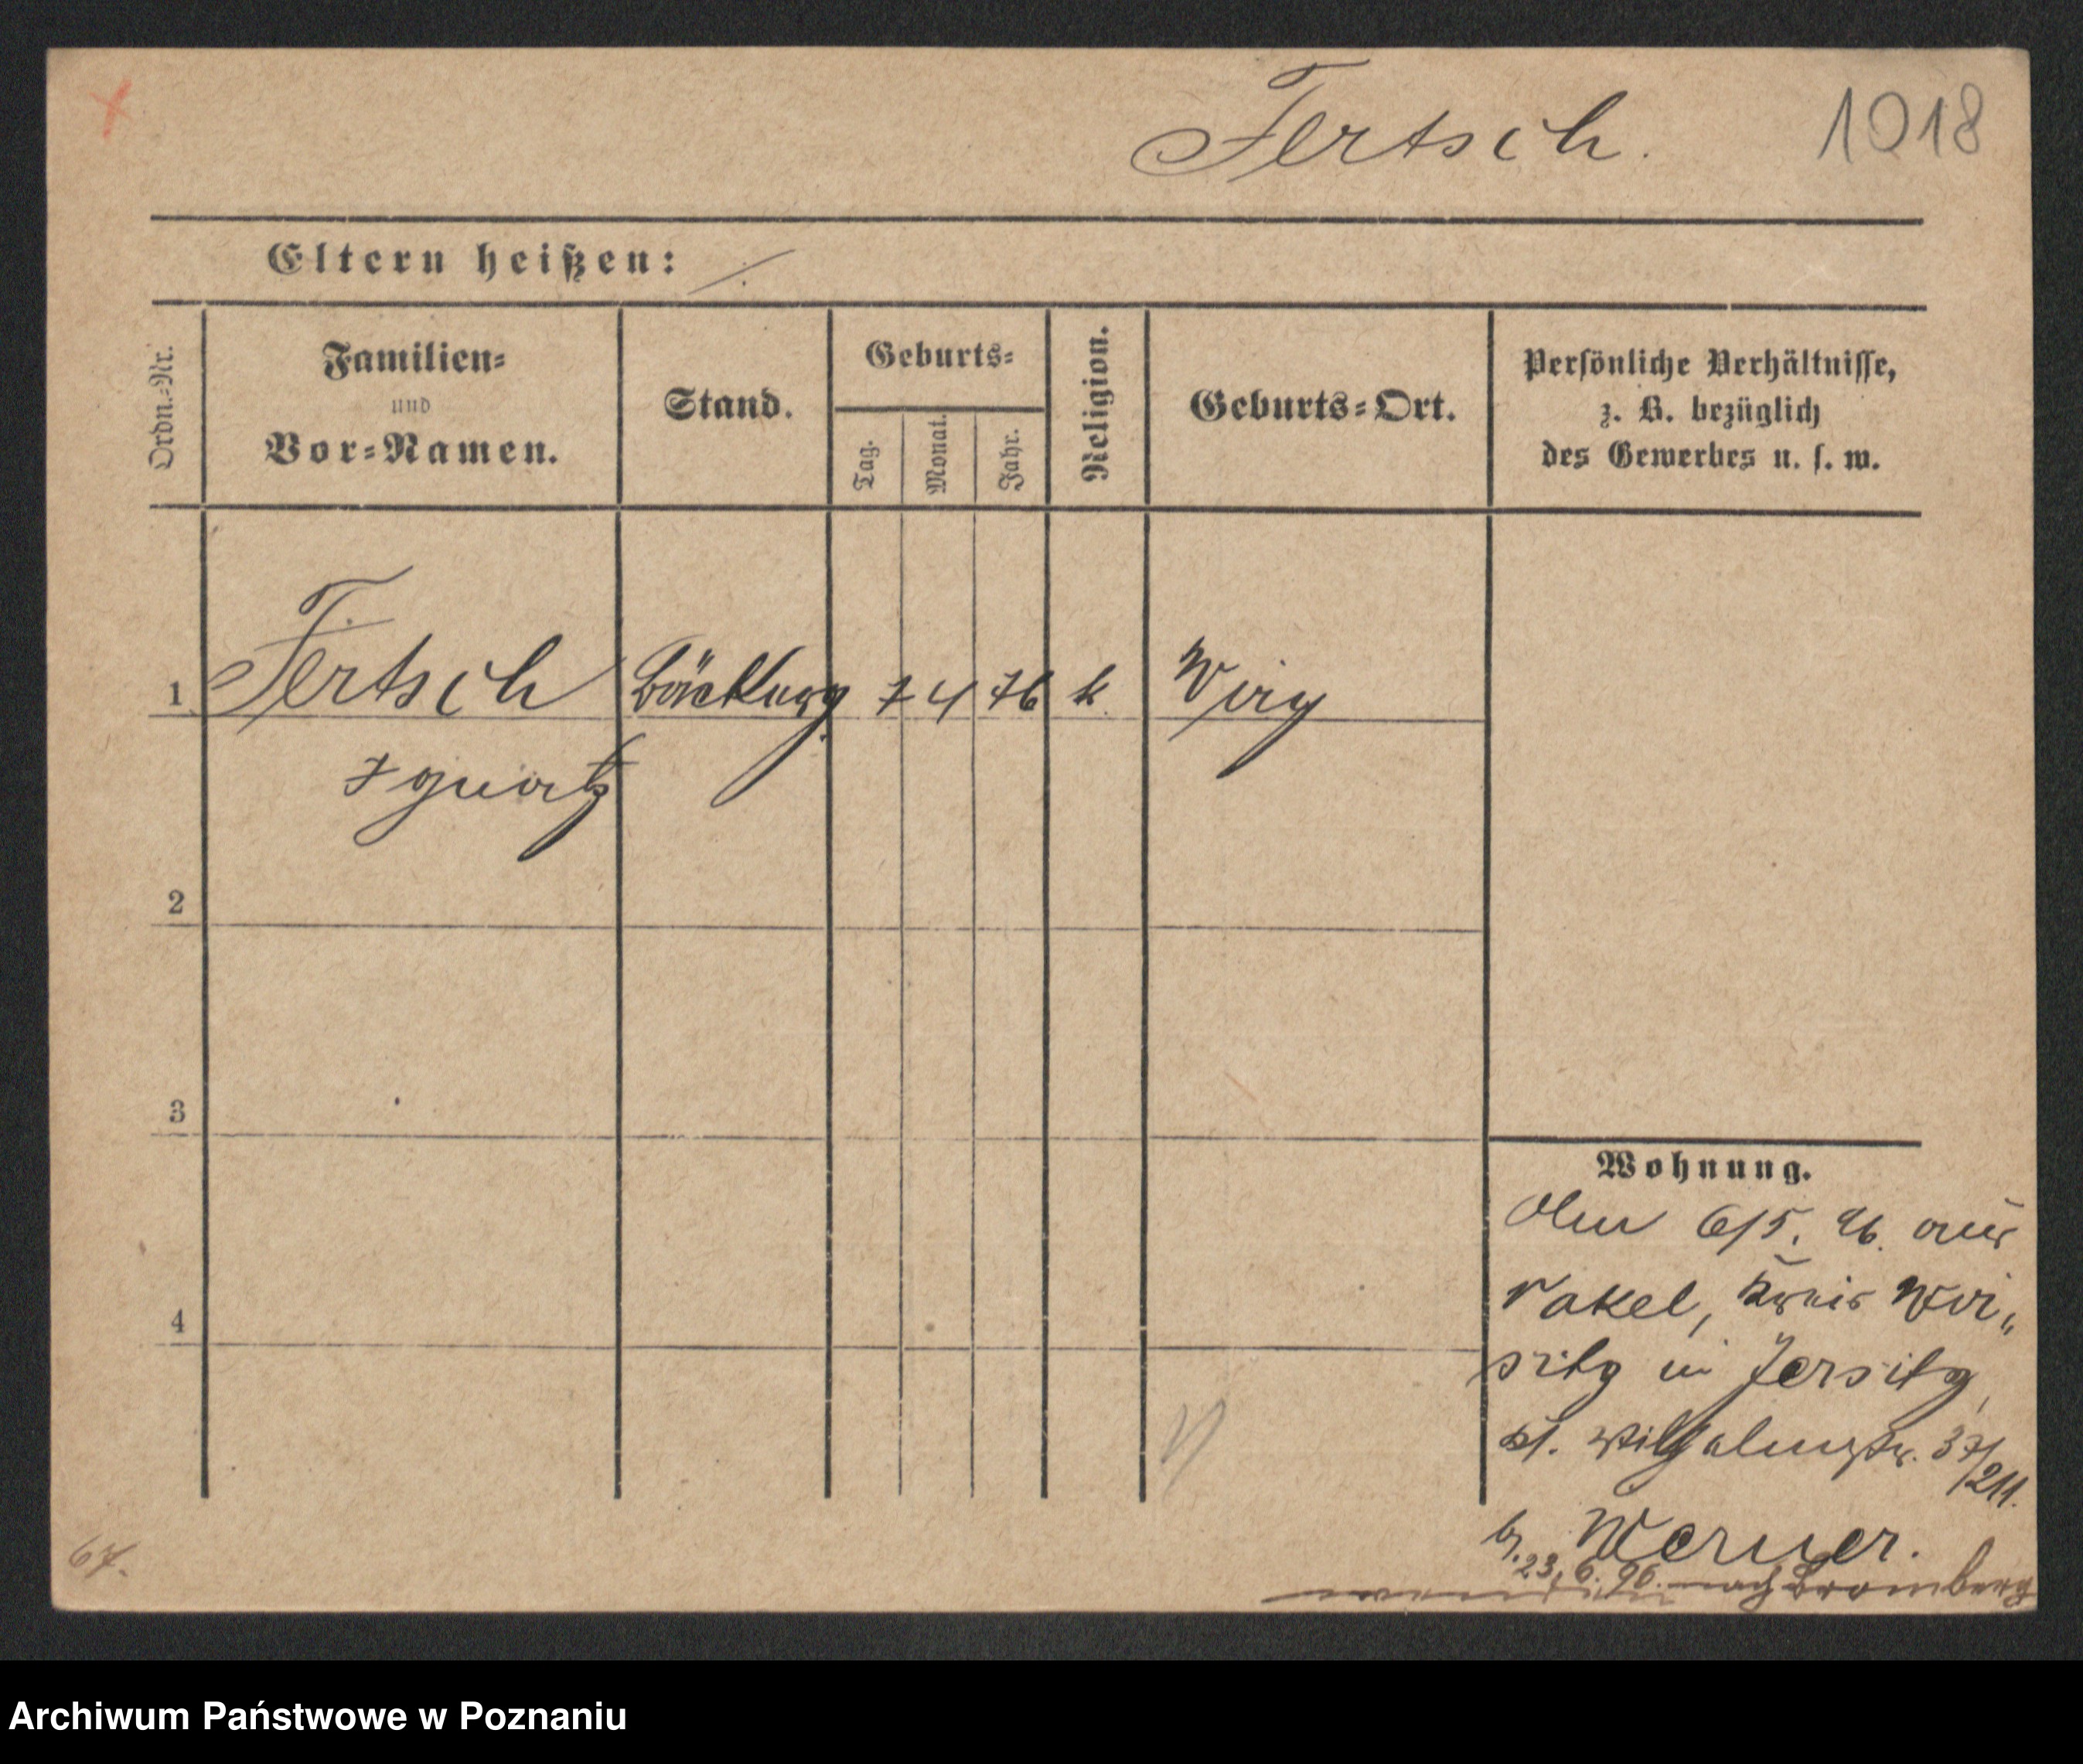 Fertsch. 1018
Eltern heißen: ./.
Ordn.-Nr.
Familien-
und
Vor-Namen.
Stand.
Geburts-
Tag.
Monat.
Jahr.
Religion.
Geburts-Ort.
Persönliche Verhältnisse,
z. B. bezüglich
des Gewerbes u. s. w.
1 Fertsch 7 4 76 k. Wiry
Ignatz
2
3
4
Wohnung.
Am 6/5. 96. aus
Nakel, Kreis Wir„
sitz in Jersitz,
kl. Wilhelmstr. 37/211.
b. Werner.
23. 6. 96. nach Bromberg
67.
Archiwum Państwowe w Poznaniu